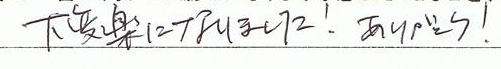 大変楽になりました！ありがとう！